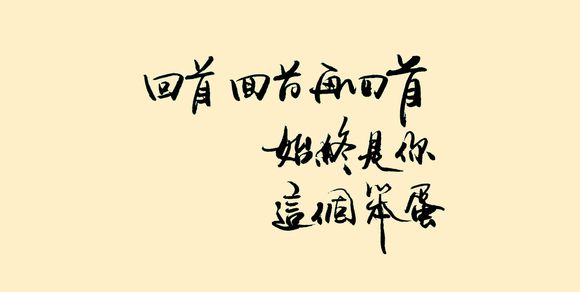 回首回首再回首
始終是你
這個笨蛋